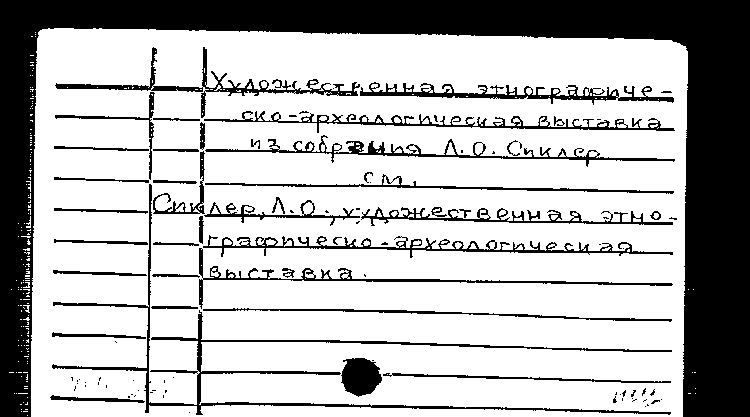 Художественная этнографиче-
ско-археологическая выставка
из собрания Л.О. Сиклер
см.
Сиклер, Л.О., художественная этно-
графическо-археологическая
выставка.